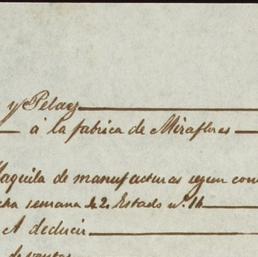 y Pelaez
á la fabrica de Miraflores
Maquila de manufacturas segun con
cha semana de 2. Estado nº. 14
A deducir
de ventas